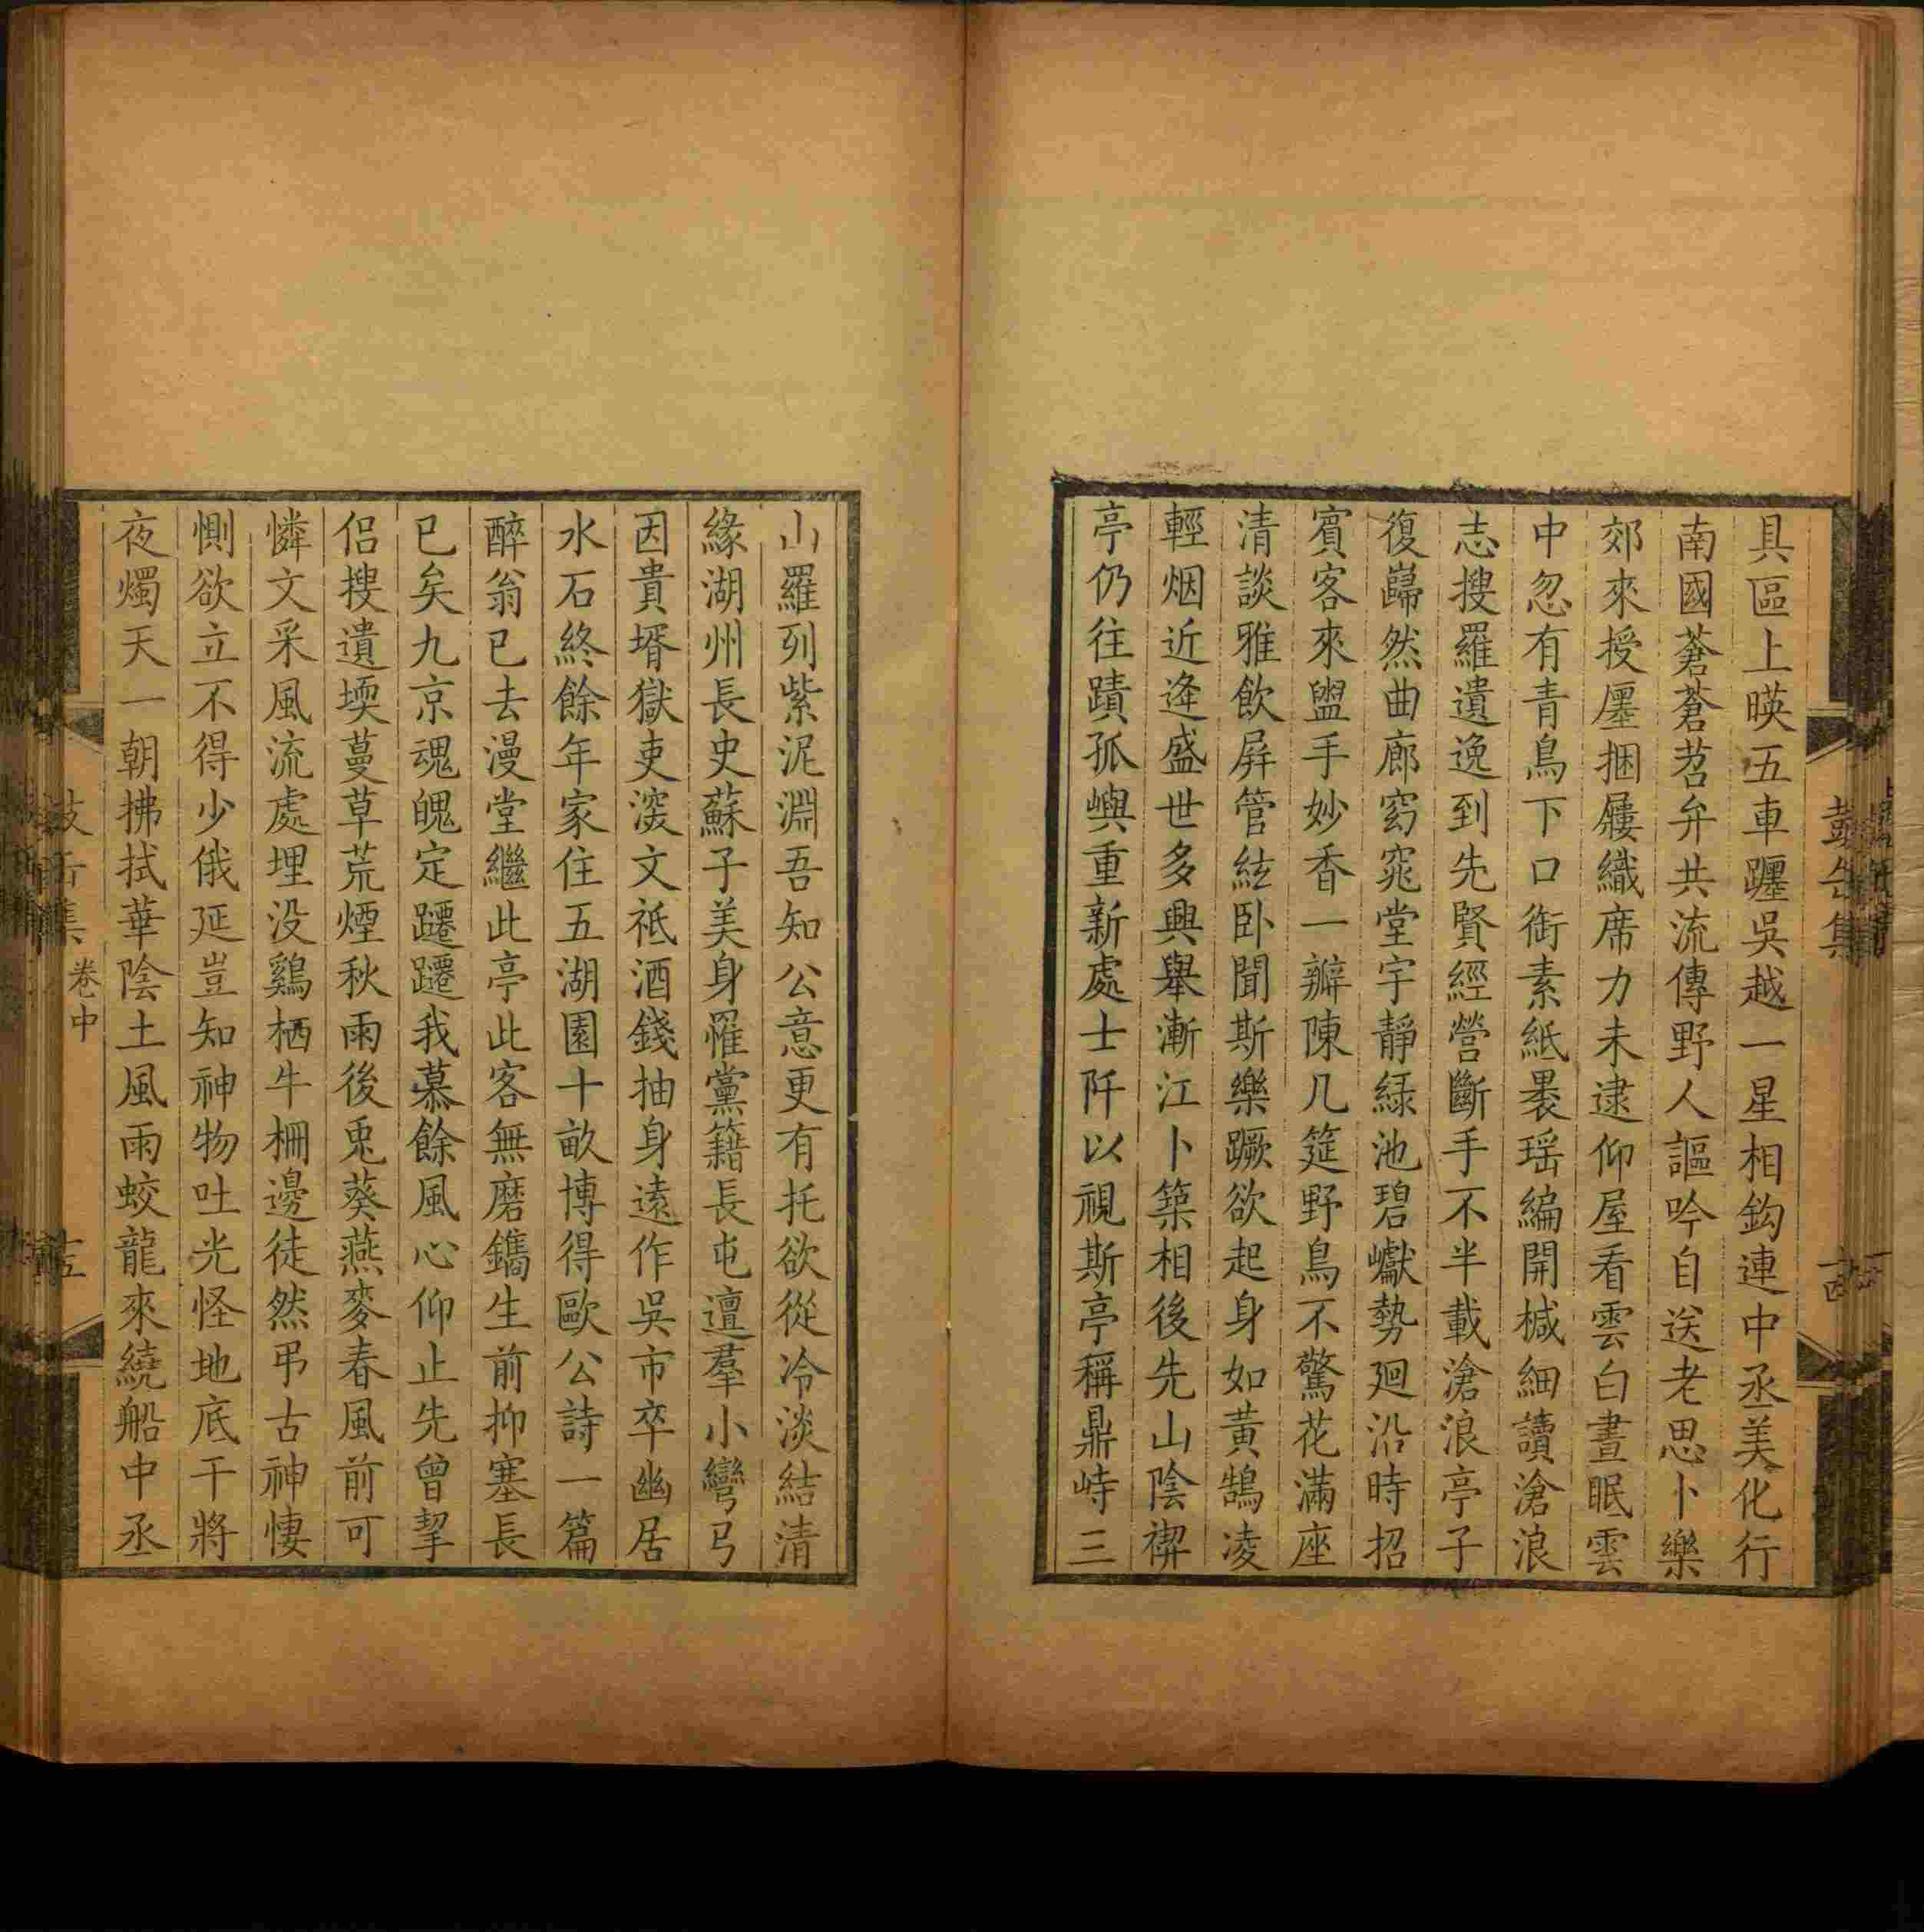 具區上暎五車躔吳越一星相鈎連中丞美化行
南國蒼蒼苕弁共流傳野人謳吟自送老思卜樂
郊來授廛捆屨織席力未逮仰屋看雲白晝眠雲
中忽有青鳥下口銜素紙褁瑶編開椷細讀滄浪
志搜羅遺逸到先賢經營斷手不半載滄浪亭子
復巋然曲廊窈窕堂宇靜緑池碧巘勢廻沿時招
賓客來盥手妙香一瓣陳几筵野鳥不驚花滿座
清談雅飲屏管絃卧聞斯樂蹶欲起身如黃鵠凌
輕烟近逄盛世多興舉漸江卜築相後先山陰禊
亭仍往蹟孤嶼重新處士阡以視斯亭稱鼎峙三
山羅列紫泥淵吾知公意更有托欲從冷淡結清
緣湖州長史蘇子美身罹黨籍長屯邅羣小彎弓
因貴壻獄吏深文祗酒錢抽身遠作吳市卒幽居
水石終餘年家住五湖園十畝博得歐公詩一篇
醉翁已去漫堂繼此亭此客無磨鐫生前抑塞長
已矣九京魂魄定躚躚我慕餘風心仰止先曾挈
侣搜遺堧蔓草荒煙秋雨後兎葵燕麥春風前可
憐文采風流處埋没鷄栖牛柵邊徒然弔古神悽
惻欲立不得少俄延豈知神物吐光怪地底干將
夜燭天一朝拂拭華陰土風雨蛟龍來繞船中丞
卷中